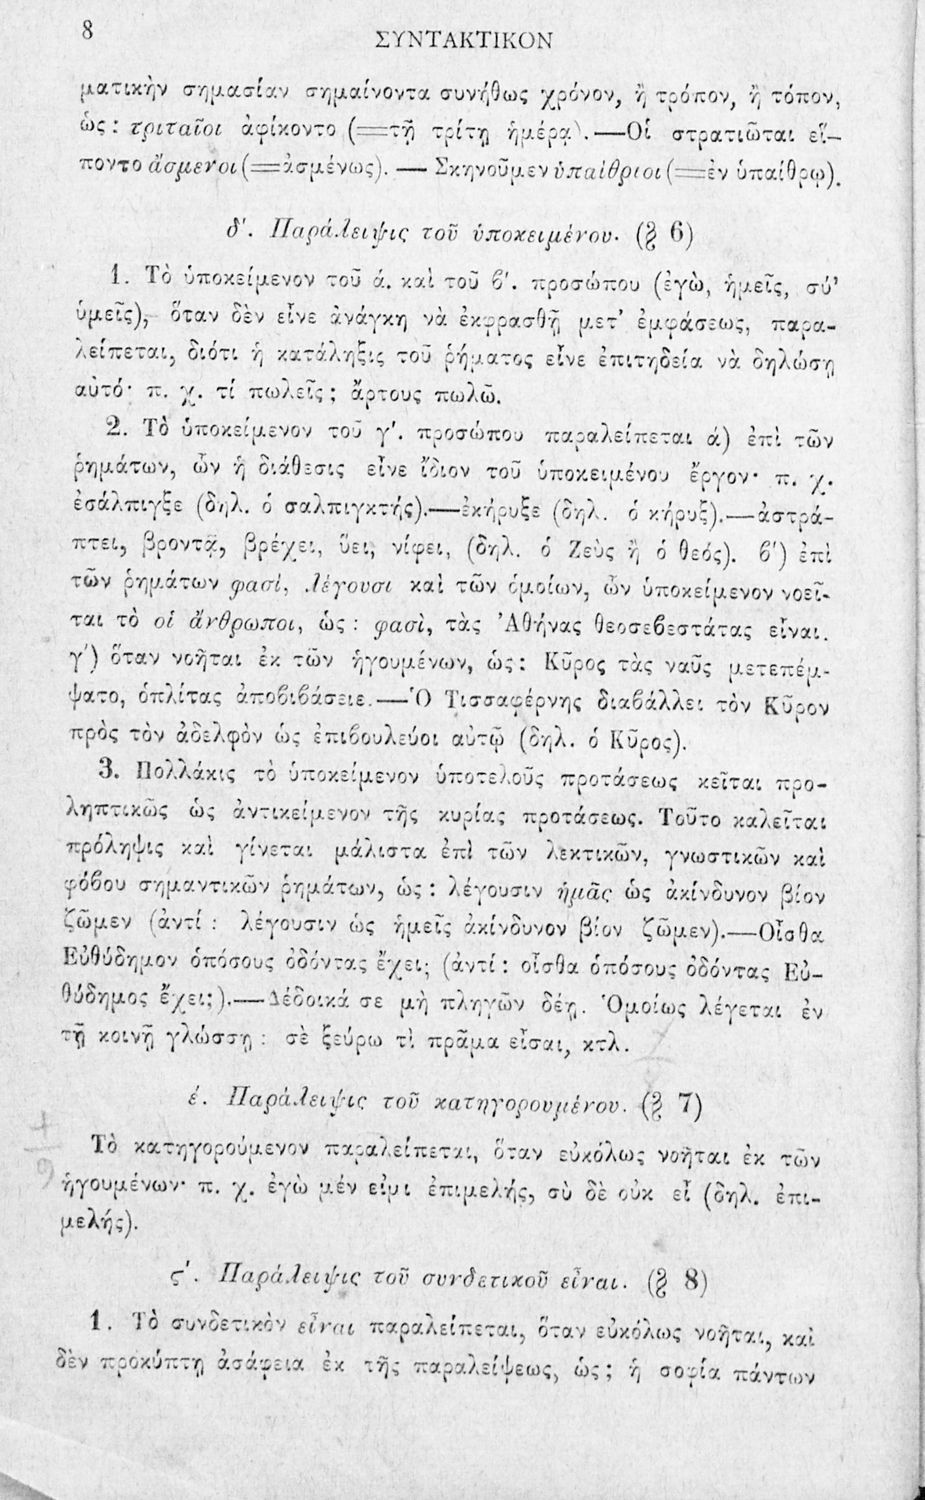 8
ΣΥΝΤΑΚΤΙΚΟΝ
ματικὴν σημασίαν σημαίνοντα συνήθως χρόνον, ἢ τρόπον, ἢ τόπον,
ὡς: τριταῖοι ἀφίκοντο (=τῇ τρίτῃ ἡμέρᾳ).—Οἱ στρατιῶται εἵ–
ποντο ἄσμενοι (=ἀσμένως). — Σκηνοῦμεν ὑπαίθριοι (=ἐν ὑπαίθρῳ).
δ'. Παράλειψις τοῦ ὑποκειμένου. (§ 6)
1. Τὸ ὑποκείμενον τοῦ ά. καὶ τοῦ β'. προσώπου (ἐγὼ, ἡμεῖς, σύ'
ὑμεῖς), ὅταν δὲν εἶνε ἀνάγκη νὰ ἐκφρασθῇ μετ' ἐμφάσεως, παρα-
λείπεται, διότι ἡ κατάληξις τοῦ ῥήματος εἶνε ἐπιτηδεία νὰ δηλώσῃ
αὐτό· π. χ. τί πωλεῖς; ἄρτους πωλῶ.
2. Τὸ ὑποκείμενον τοῦ γ'. προσώπου παραλείπεται ά) ἐπὶ τῶν
ῥημάτων, ὧν ἡ διάθεσις εἶνε ἴδιον τοῦ ὑποκειμένου ἔργον· π. χ.
ἐσάλπιγξε (δηλ. ὁ σαλπιγκτής).—ἐκήρυξε (δηλ. ὁ κήρυξ).—ἀστρά-
πτει, βροντᾷ, βρέχει, ὕει, νίφει, (δηλ. ὁ Ζεὺς ἢ ὁ θεός). β') ἐπὶ
τῶν ῥημάτων φασὶ, λέγουσι καὶ τῶν ὁμοίων, ὧν ὑποκείμενον νοεῖ-
ται τὸ οἱ ἄνθρωποι, ὡς: φασὶ, τὰς Ἀθήνας θεοσεβεστάτας εἶναι.
γ') ὅταν νοῆται ἐκ τῶν ἡγουμένων, ὡς: Κῦρος τὰς ναῦς μετεπέμ-
ψατο, ὁπλίτας ἀποβιβάσειε.—Ὁ Τισσαφέρνης διαβάλλει τὸν Κῦρον
πρὸς τὸν ἀδελφὸν ὡς ἐπιβουλεύοι αὐτῷ (δηλ. ὁ Κῦρος).
3. Πολλάκις τὸ ὑποκείμενον ὑποτελοῦς προτάσεως κεῖται προ-
ληπτικῶς ὡς ἀντικείμενον τῆς κυρίας προτάσεως. Τοῦτο καλεῖται
πρόληψις καὶ γίνεται μάλιστα ἐπὶ τῶν λεκτικῶν, γνωστικῶν καὶ
φόβου σημαντικῶν ῥημάτων, ὡς: λέγουσιν ἡμᾶς ὡς ἀκίνδυνον βίον
ζῶμεν (ἀντί: λέγουσιν ὡς ἡμεῖς ἀκίνδυνον βίον ζῶμεν).—Οἶσθα
Εὐθύδημον ὁπόσους ὀδόντας ἔχει; (ἀντί: οἶσθα ὁπόσους ὀδόντας Εὐ-
θύδημος ἔχει;).—Δέδοικά σε μὴ πληγῶν δέῃ. Ὁμοίως λέγεται ἐν
τῇ κοινῇ γλώσσῃ: σὲ ξεύρω τὶ πρᾶμα εἶσαι, κτλ.
έ. Παράλειψις τοῦ κατηγορουμένου. (§ 7)
Τὸ κατηγορούμενον παραλείπεται, ὅταν εὐκόλως νοῆται ἐκ τῶν
ἡγουμένων· π. χ. ἐγὼ μέν εἰμι ἐπιμελής, σὺ δὲ οὐκ εἶ (δηλ. ἐπι-
μελής).
ς'. Παράλειψις τοῦ συνδετικοῦ εἶναι. (§ 8)
1. Τὸ συνδετικὸν εἶναι παραλείπεται, ὅταν εὐκόλως νοῆται, καὶ
δὲν προκύπτῃ ἀσάφεια ἐκ τῆς παραλείψεως, ὡς; ἡ σοφία πάντων